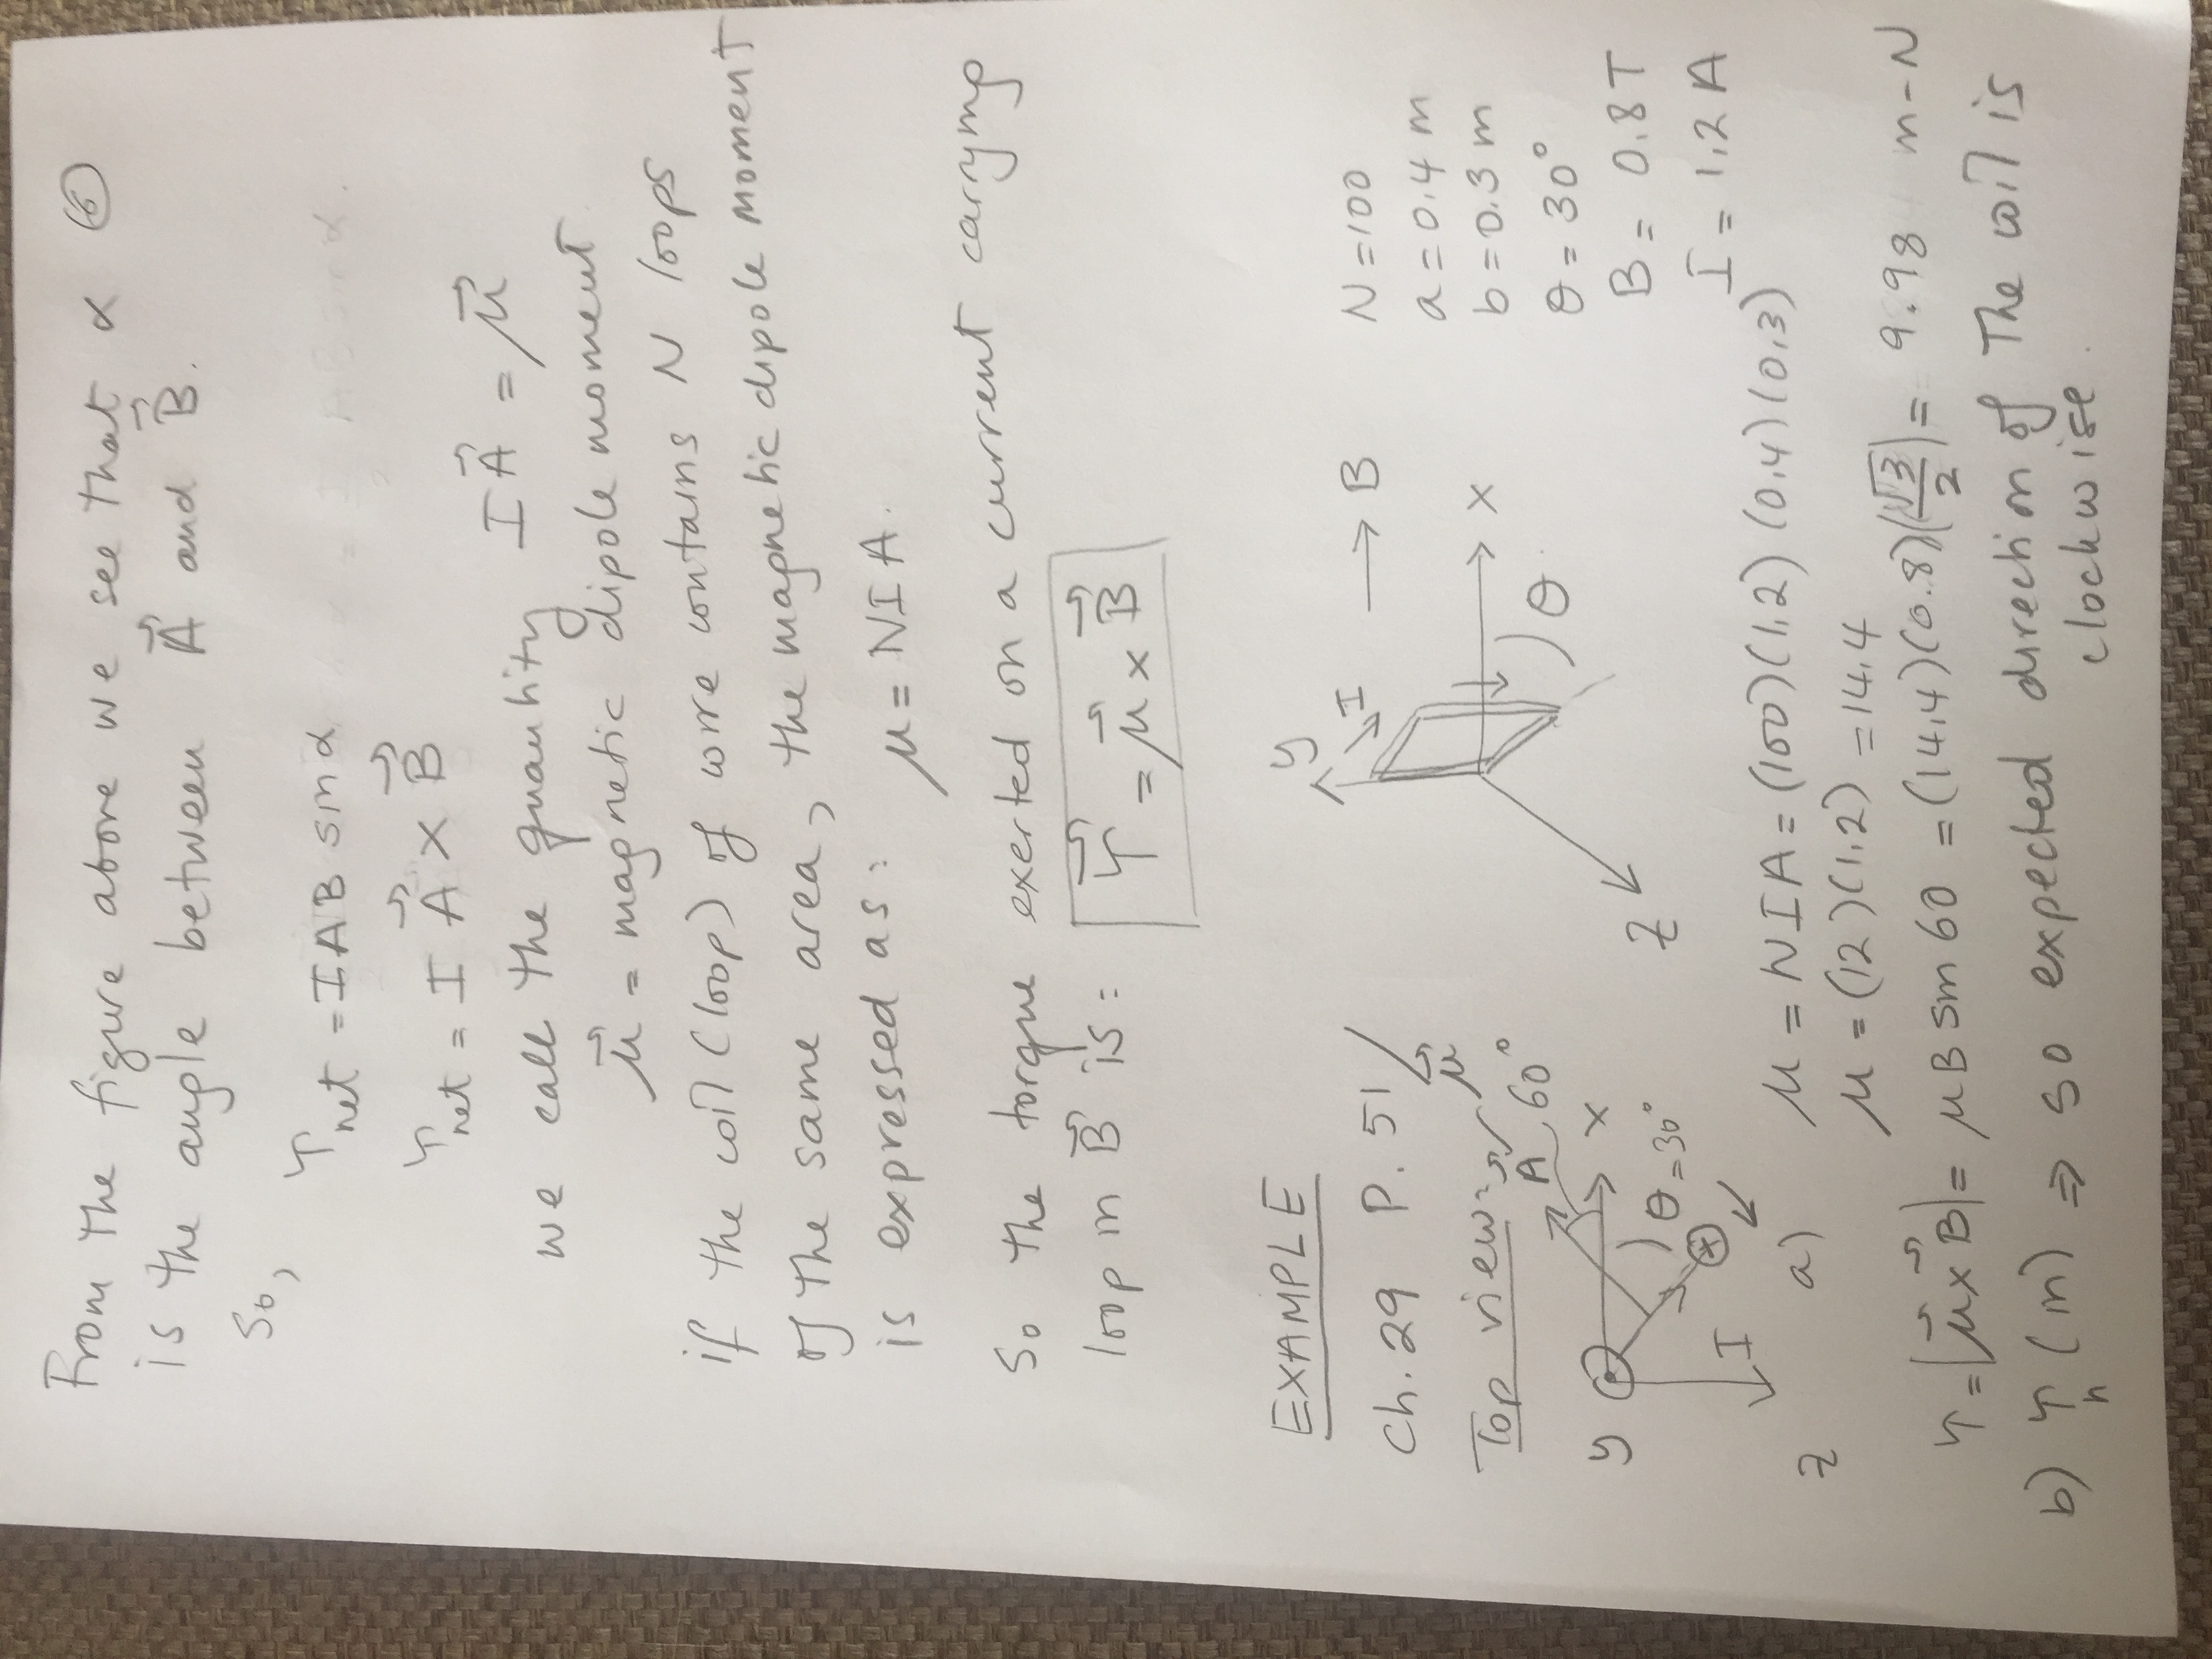 From the figure above we see that α ⑥
is the angle between A⃗ and B⃗.
So,
τnet = IAB sinα
τnet = I A⃗ × B⃗
we call the quantity IA⃗ = μ⃗
μ⃗ = magnetic dipole moment
if the coil (loop) of wire contains N loops
of the same area, the magnetic dipole moment
is expressed as: μ = NIA.
So the torque exerted on a current carrying
loop in B⃗ is: τ⃗ = μ⃗ × B⃗
EXAMPLE
Ch. 29 P. 51
Top view:
μ⃗
A⃗ 60°
y x
θ = 30°
I
z
y
I
→ B
x
θ
z
N = 100
a = 0.4 m
b = 0.3 m
θ = 30°
B = 0.8 T
I = 1.2 A
a) μ = NIA = (100)(1.2)(0.4)(0.3)
μ = (12)(1.2) = 14.4
τ = |μ⃗ × B⃗| = μB sin 60 = (14.4)(0.8)(√3/2) = 9.98 m-N
b) τn (in) ⇒ so expected direction of the coil is
clockwise.